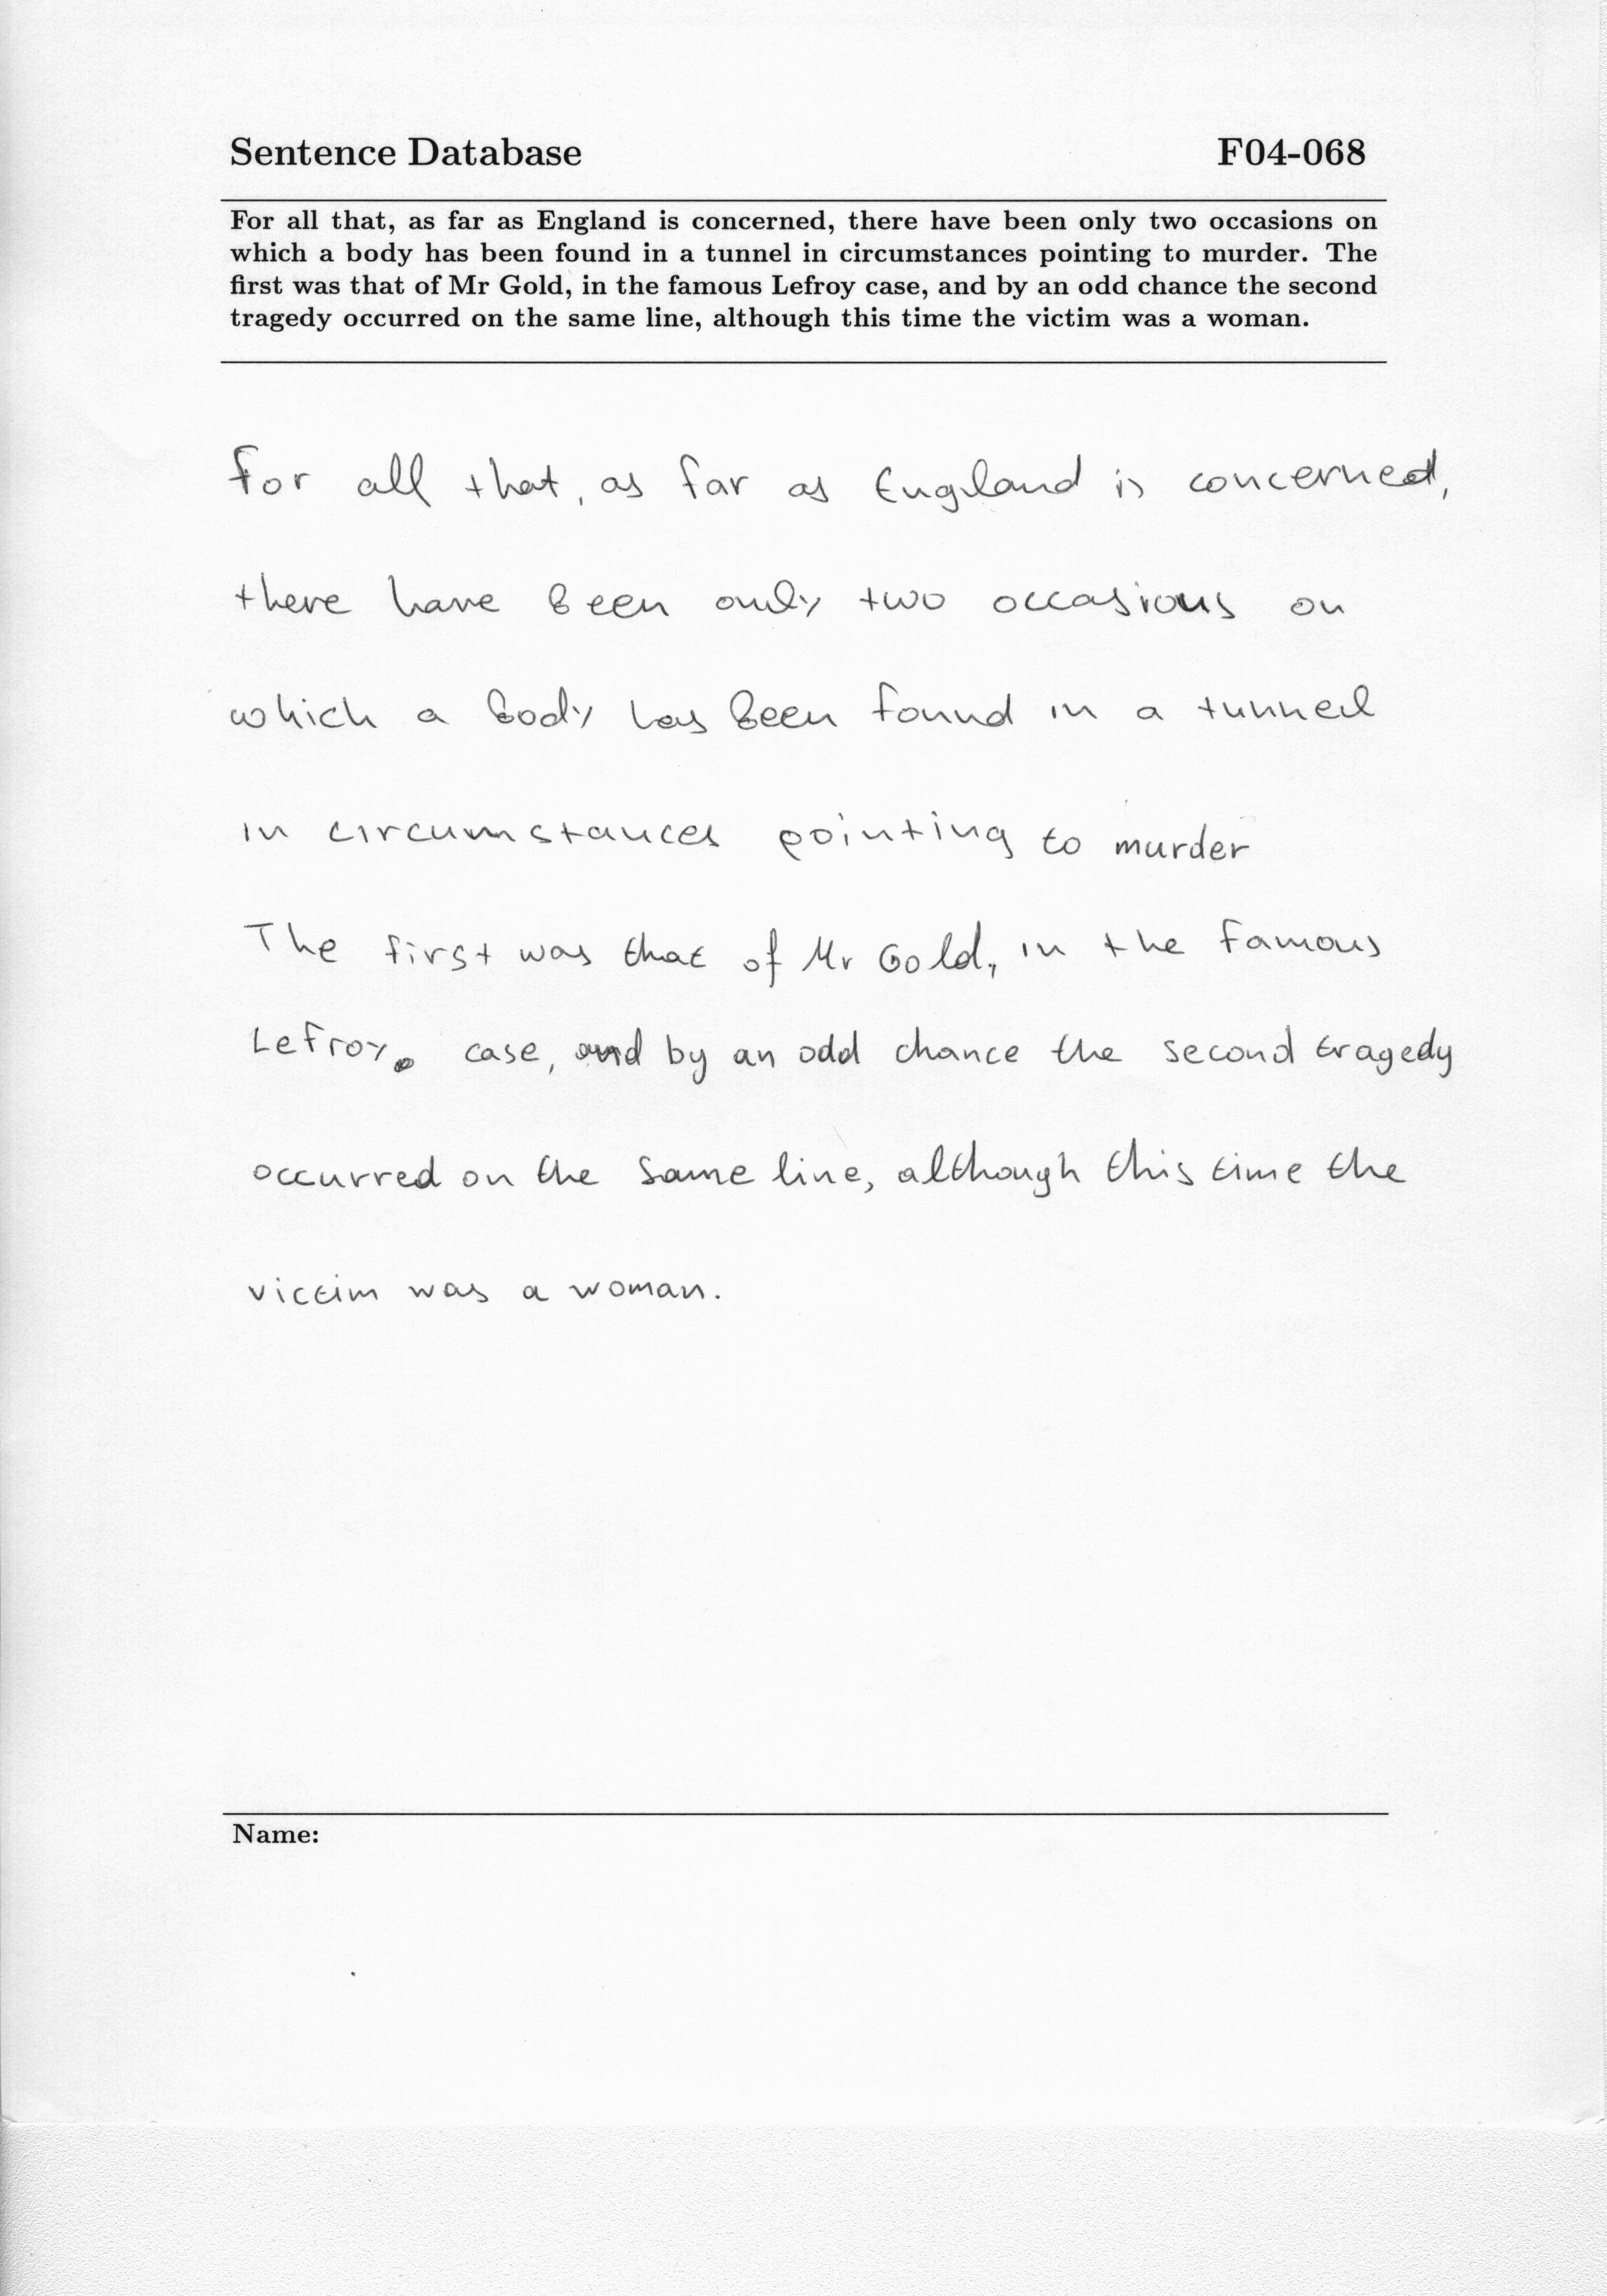 Sentence Database F04-068
For all that, as far as England is concerned, there have been only two occasions on
which a body has been found in a tunnel in circumstances pointing to murder. The
first was that of Mr Gold, in the famous Lefroy case, and by an odd chance the second
tragedy occurred on the same line, although this time the victim was a woman.
For all that, as far as England is concerned,
there have been only two occasions on
which a body has been found in a tunnel
in circumstances pointing to murder
The first was that of Mr Gold, in the famous
Lefroy case, and by an odd chance the second tragedy
occurred on the same line, although this time the
victim was a woman.
Name: